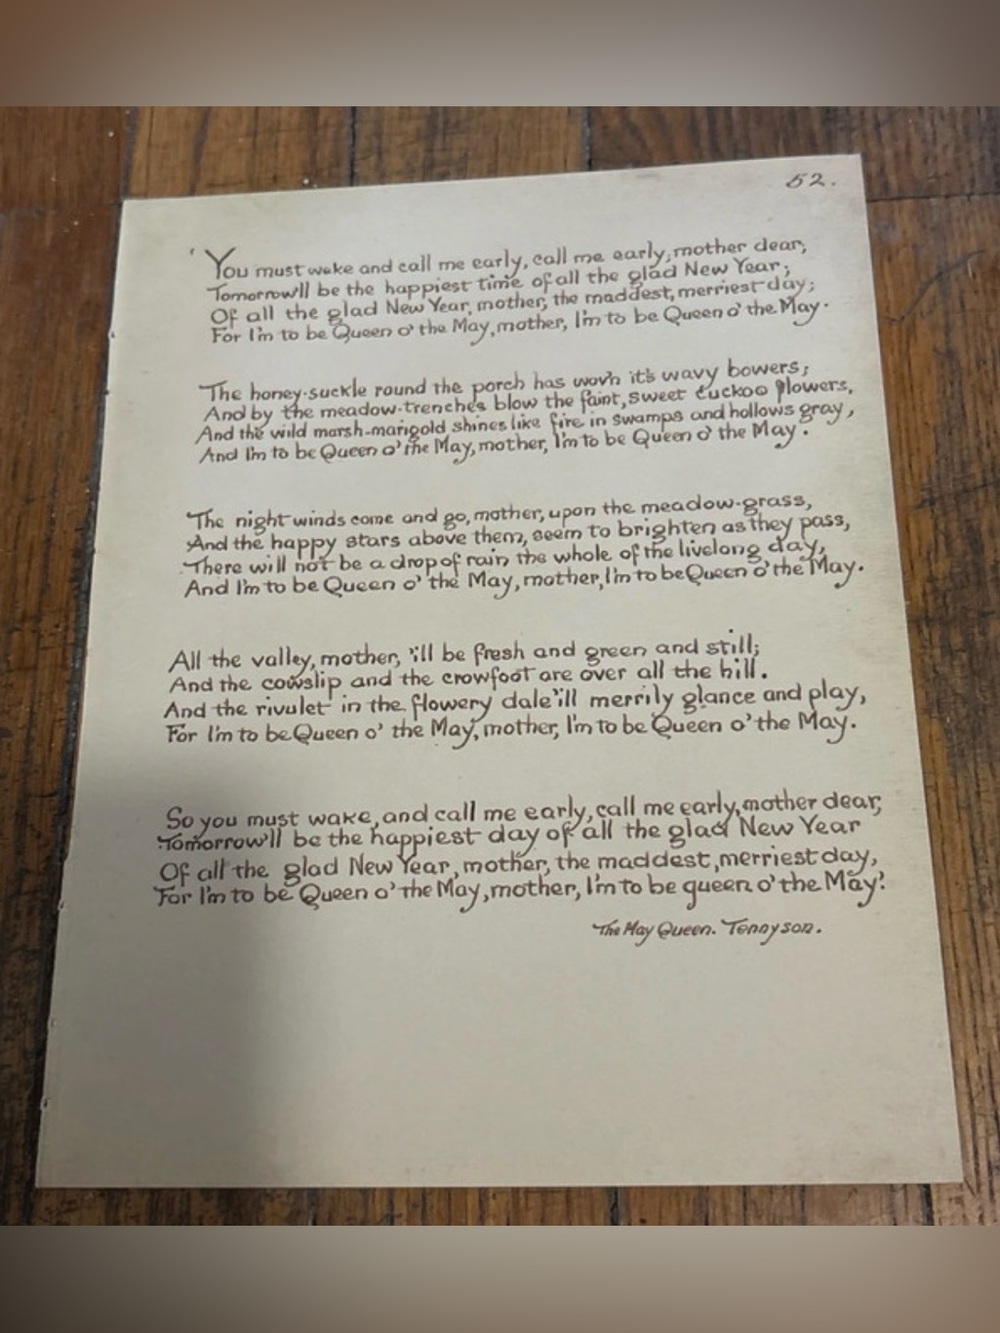 52.
'You must wake and call me early, call me early, mother dear,
Tomorrow'll be the happiest time of all the glad New Year;
Of all the glad New Year, mother, the maddest, merriest day;
For I'm to be Queen o' the May, mother, I'm to be Queen o' the May.
The honey-suckle round the porch has wov'n it's wavy bowers;
And by the meadow-trenches blow the faint, sweet cuckoo flowers,
And the wild marsh-marigold shines like fire in swamps and hollows gray,
And I'm to be Queen o' the May, mother, I'm to be Queen o' the May.
The night winds come and go, mother, upon the meadow-grass,
And the happy stars above them, seem to brighten as they pass,
There will not be a drop of rain the whole of the livelong day,
And I'm to be Queen o' the May, mother, I'm to be Queen o' the May.
All the valley, mother, 'ill be fresh and green and still;
And the cowslip and the crowfoot are over all the hill.
And the rivulet in the flowery dale 'ill merrily glance and play,
For I'm to be Queen o' the May, mother, I'm to be Queen o' the May.
So you must wake, and call me early, call me early, mother dear,
Tomorrow'll be the happiest day of all the glad New Year
Of all the glad New Year, mother, the maddest, merriest day,
For I'm to be Queen o' the May, mother, I'm to be queen o' the May.'
The May Queen. Tennyson.